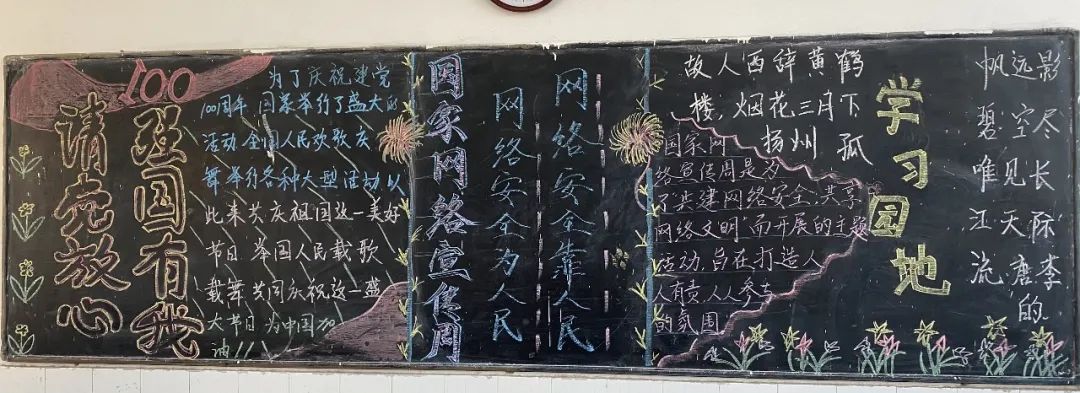 100
请党放心
强国有我
为了庆祝建党
100周年 国家举行了盛大的
活动 全国人民欢歌庆
舞 举行各种大型活动以
此来共庆祖国这一美好
节日 举国人民载歌
载舞 共同庆祝这一盛
大节日 为中国加
油!!
国家网络宣传周
网络安全为人民
网络安全靠人民
故人西辞黄鹤
楼,烟花三月下
扬州 孤
国家网
络宣传周是为
了共建网络安全,共享
网络文明"而开展的主题
活动,旨在打造人
人有责,人人参与
的氛围
学习园地
帆远影
碧空尽
唯见长
江天际
流 唐李
的